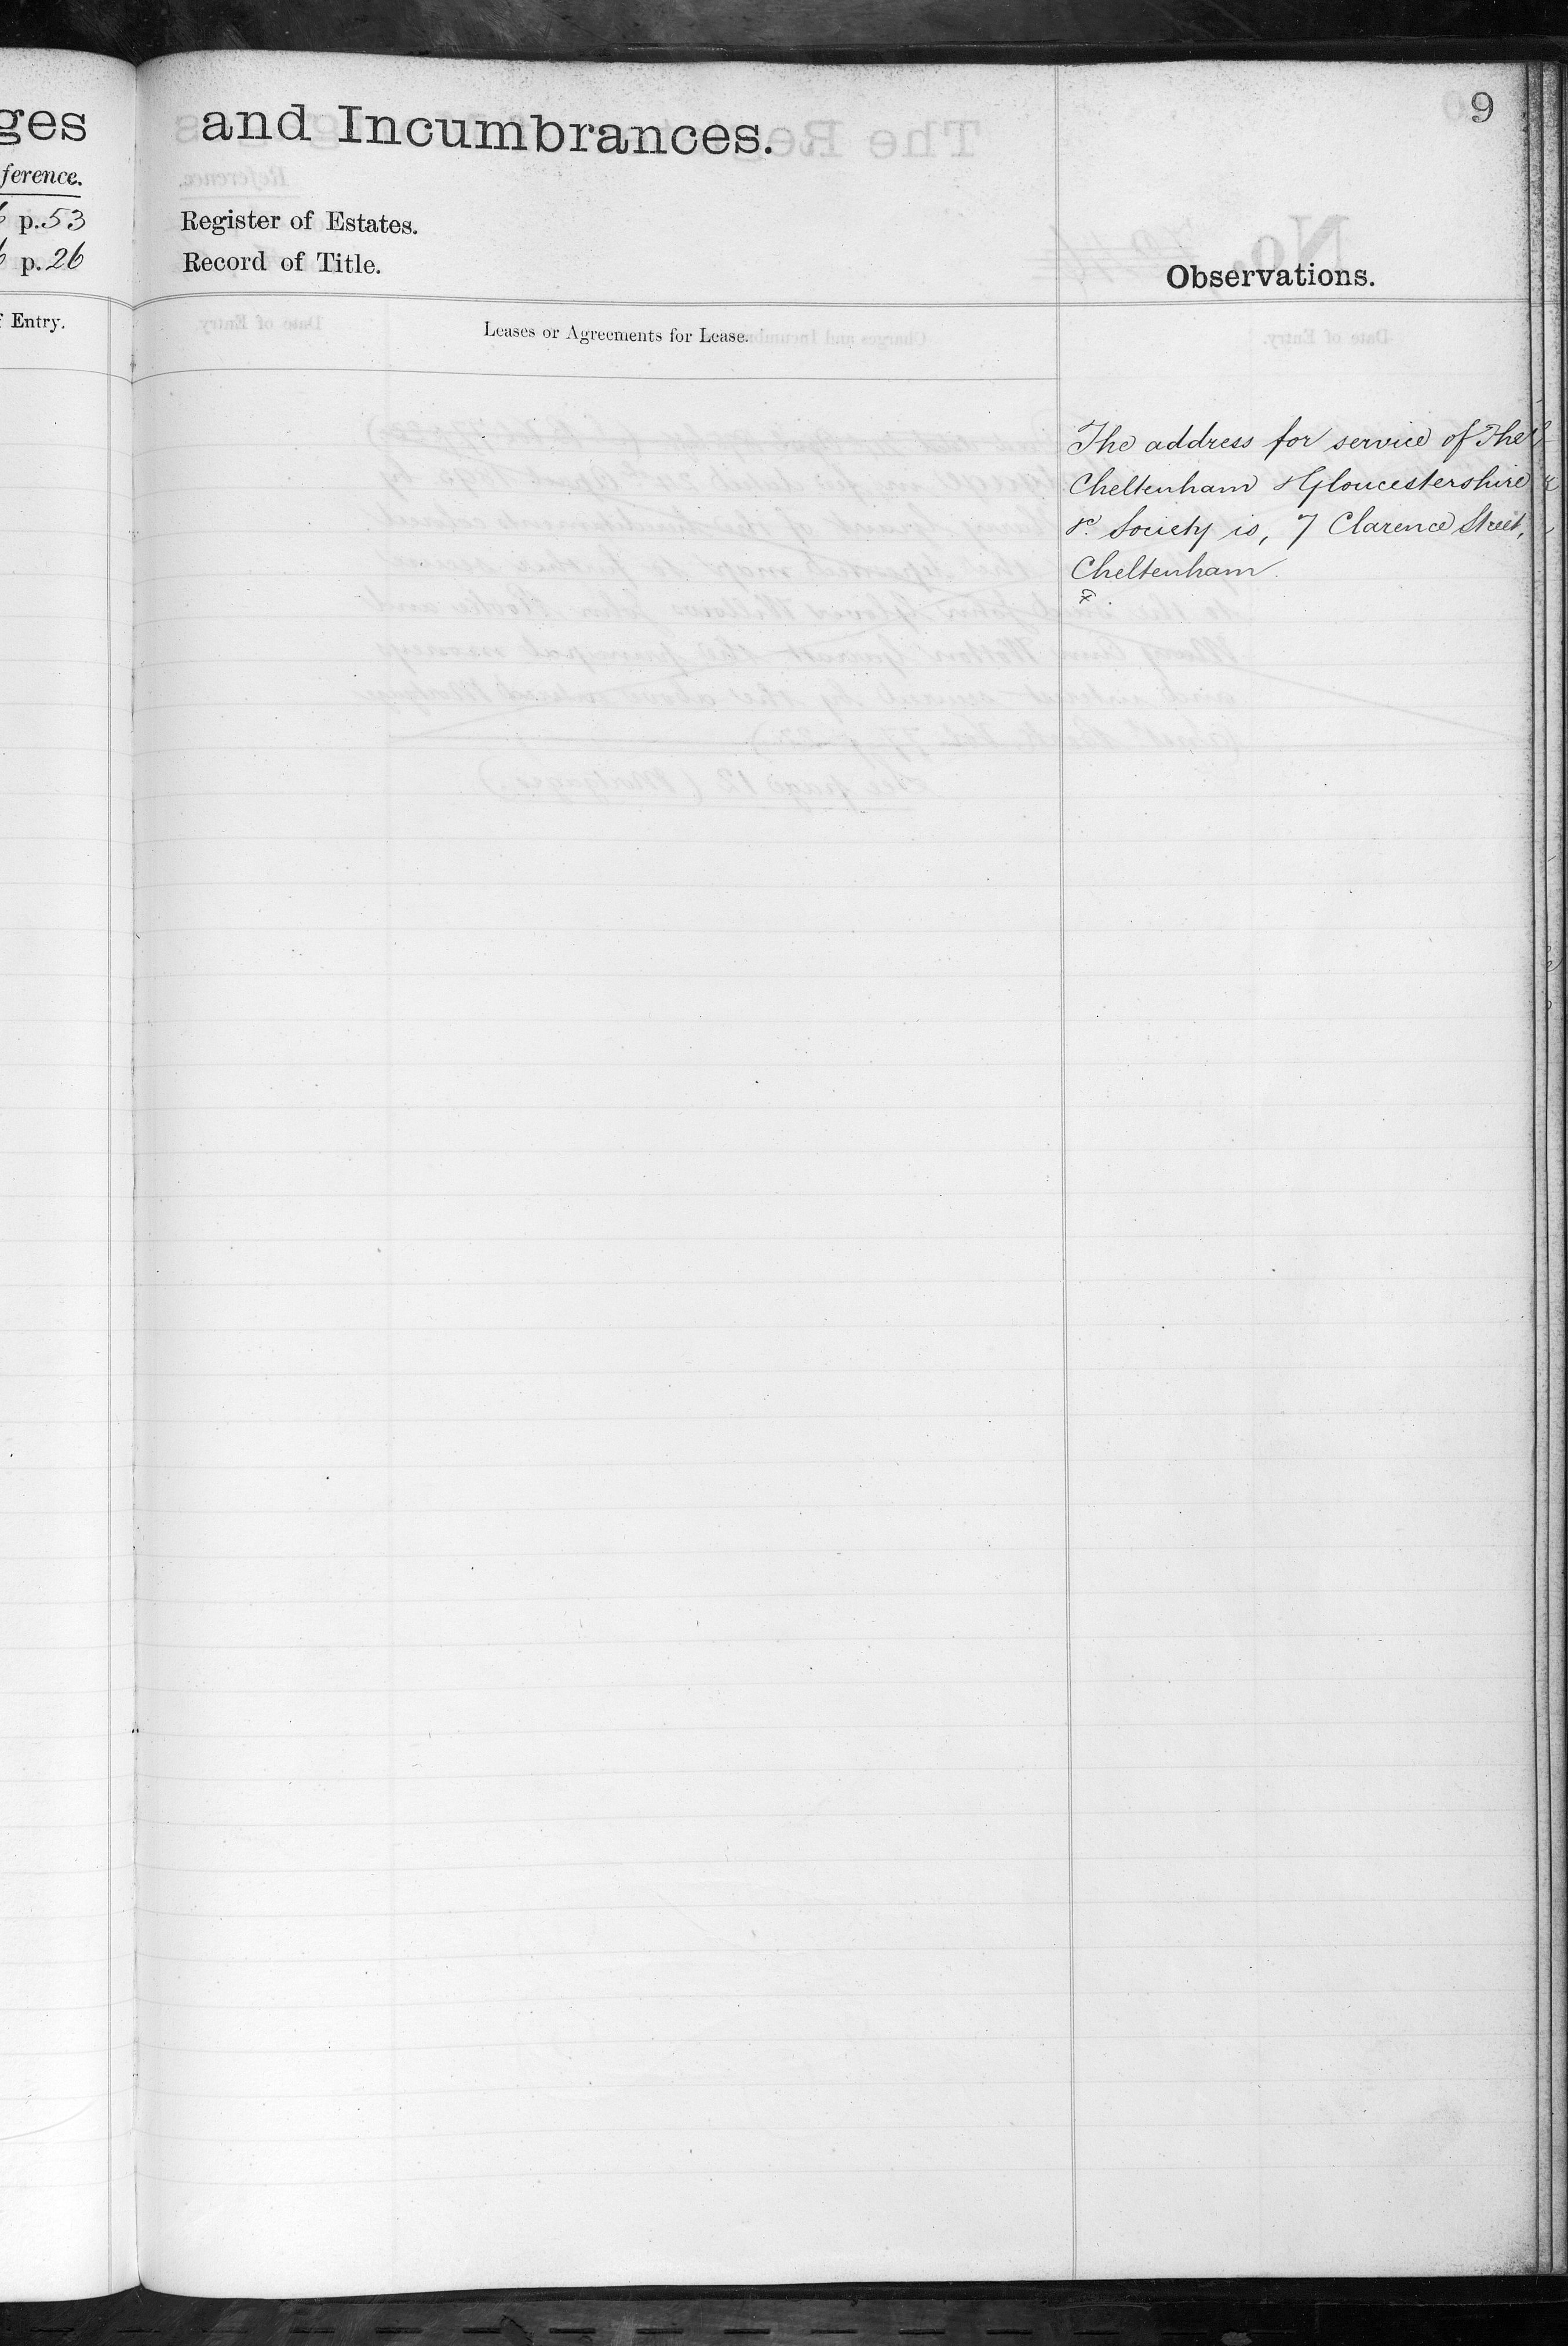 9
ges and Incumbrances.
ference.
p. 53 Register of Estates.
p. 26 Record of Title.
Observations.
f Entry.
Leases or Agreements for Lease.
The address for service of The
Cheltenham & Gloucestershire
&c. Society is, 7 Clarence Street,
Cheltenham.